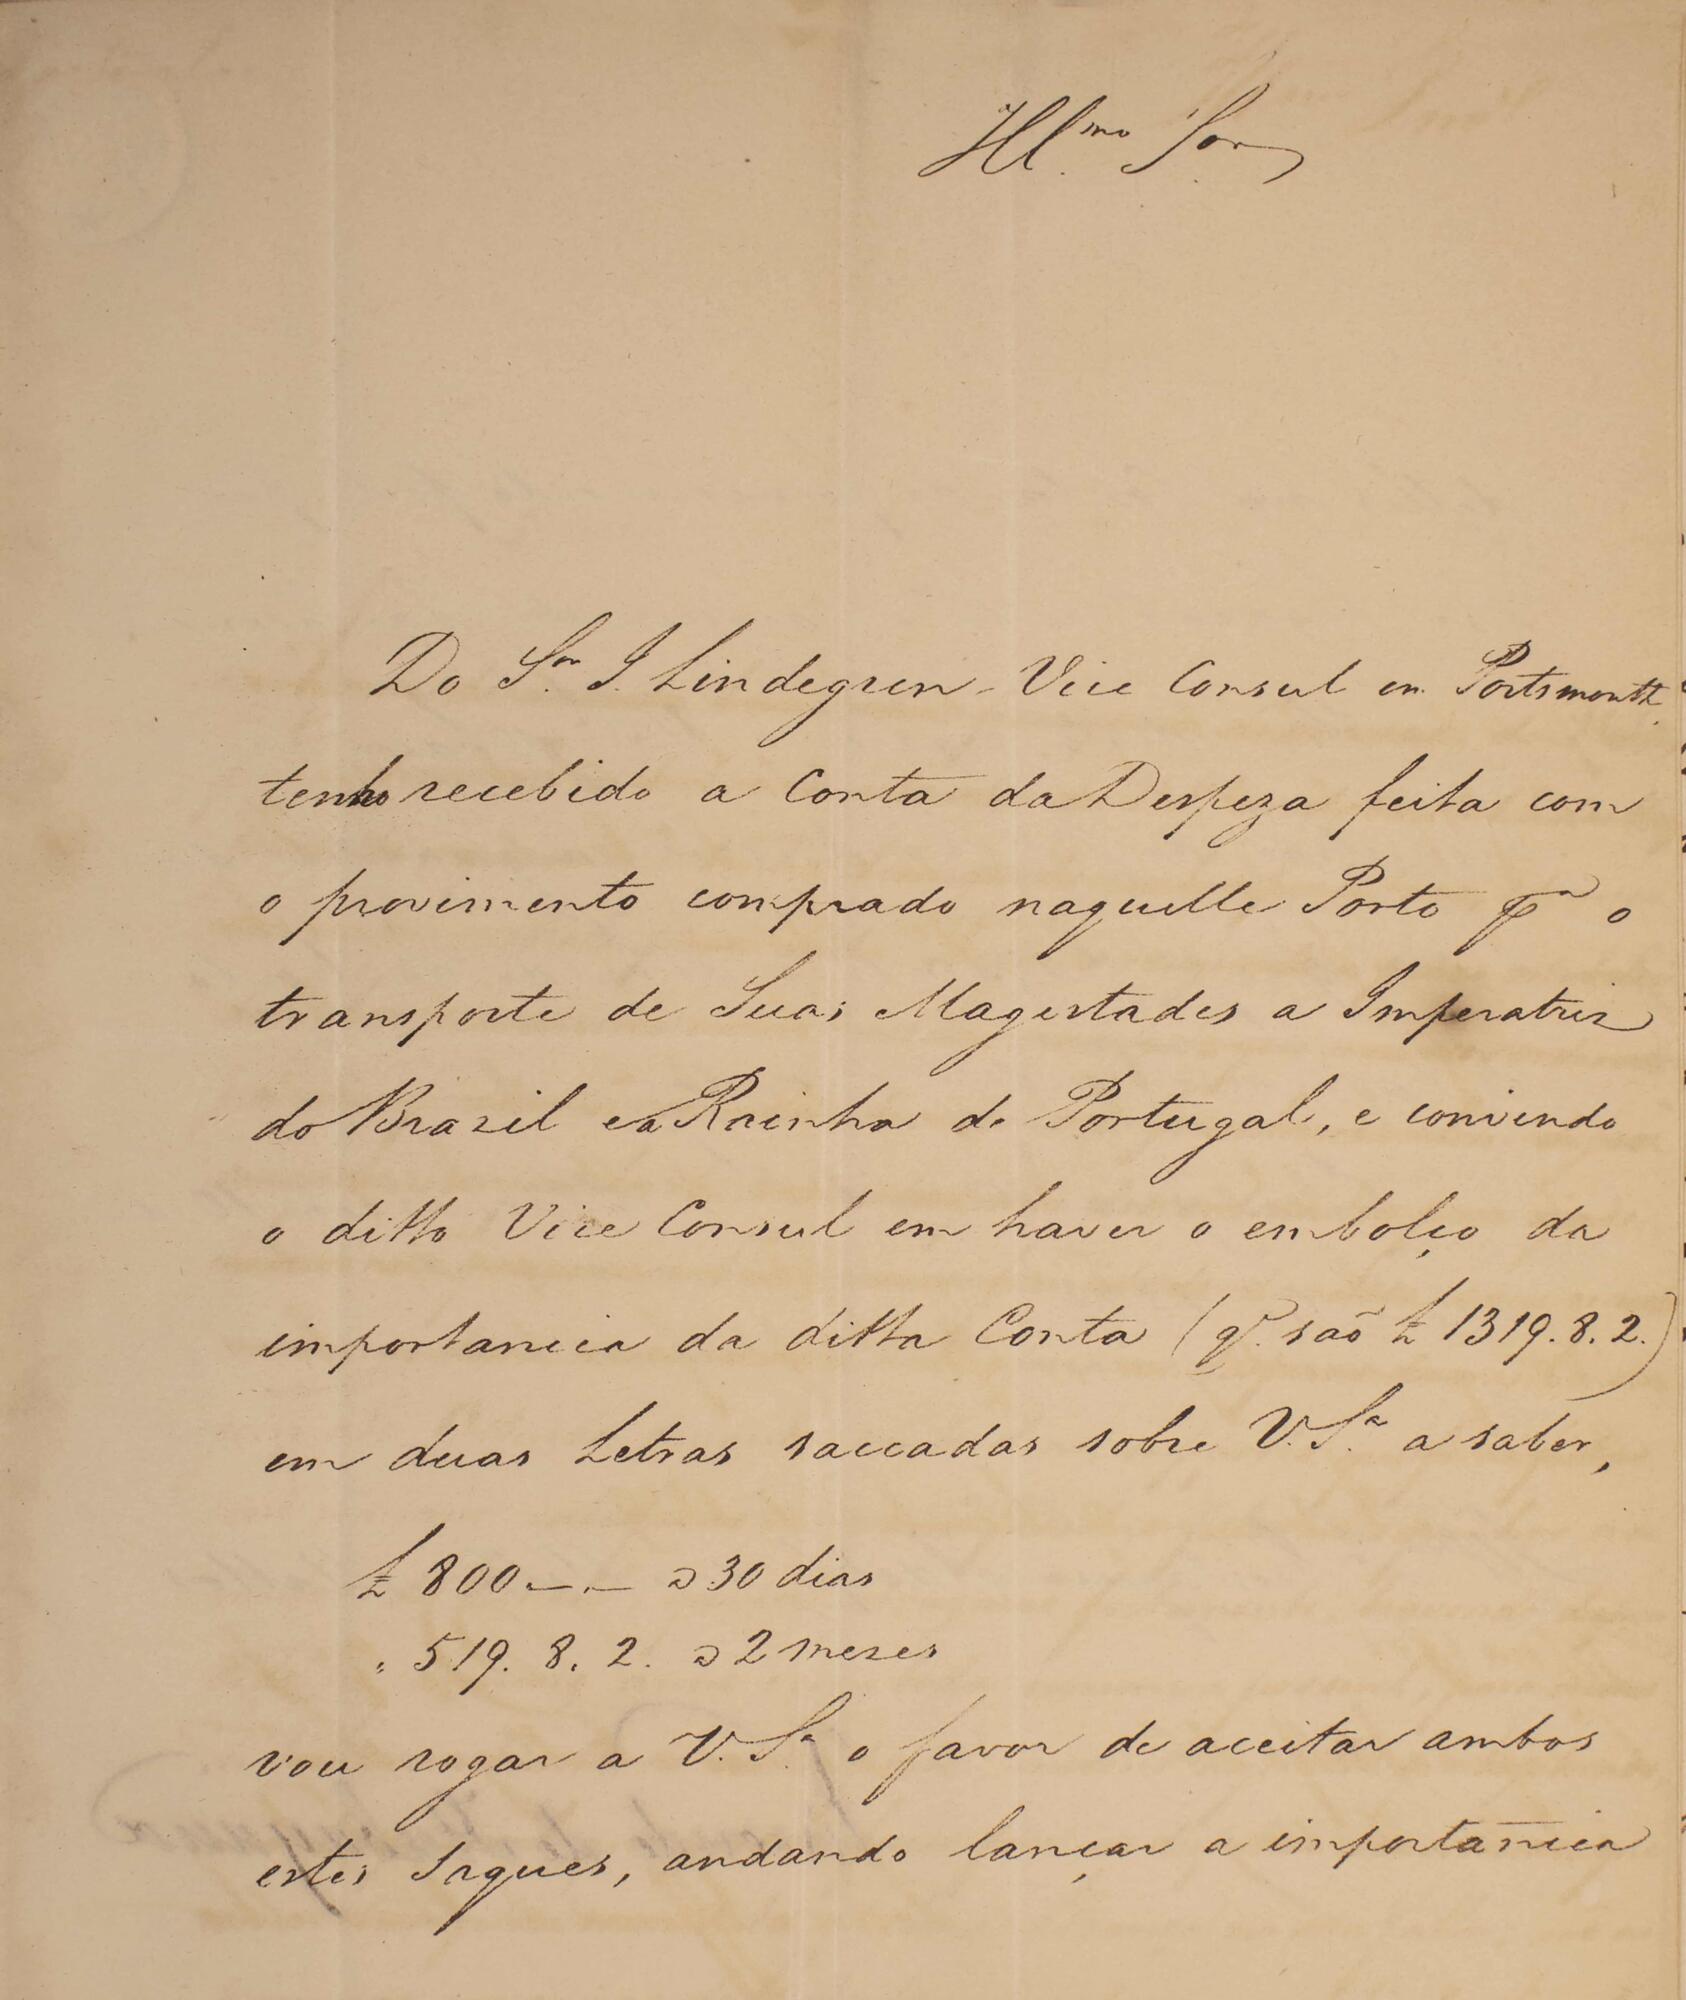 Ill.mo S.or
Do S.or J. Lindegren Vice Consul em Portsmouth
tenho recebido a Conta da Despeza feita com
o provimento comprado naquelle Porto p.a o
transporte de Suas Magestades a Imperatriz
do Brazil e a Rainha de Portugal, e convindo
o ditto Vice Consul em haver o embolço da
importancia da ditta Conta (q.e saõ £ 1319. 8. 2.)
em duas Letras saccadas sobre V. S.a a saber,
£ 800 —.— a 30 dias
" 519. 8. 2. a 2 mezes
vou rogar a V. S.a o favor de aceitar ambos
estes Saques, andando lançar a importancia